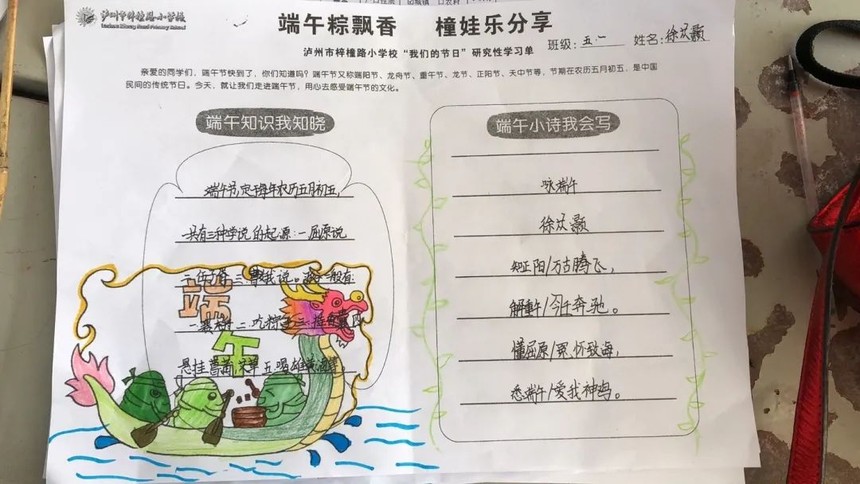 泸州市梓橦路小学校
端午粽飘香 橦娃乐分享
泸州市梓橦路小学校“我们的节日”研究性学习单 班级：五.一 姓名：徐 颢
亲爱的同学们，端午节快到了，你们知道吗？端午节又称端阳节、龙舟节、重午节、龙节、正阳节、天中节等，节期在农历五月初五，是中国
民间的传统节日。今天，就让我们走进端午节，用心去感受端午节的文化。
端午知识我知晓
端午节，定于每年农历五月初五，
共有三种学说的起源：一 屈原说
二 三 说。 一般有：
一 二. 吃粽子 三.
悬挂 五 喝雄黄酒
端午
端午小诗我会写
咏端午
徐 颢
知正阳/万古腾飞，
解重午/今壬奔驰。
懂屈原/ 怀致海，
悉端午/爱我神 。